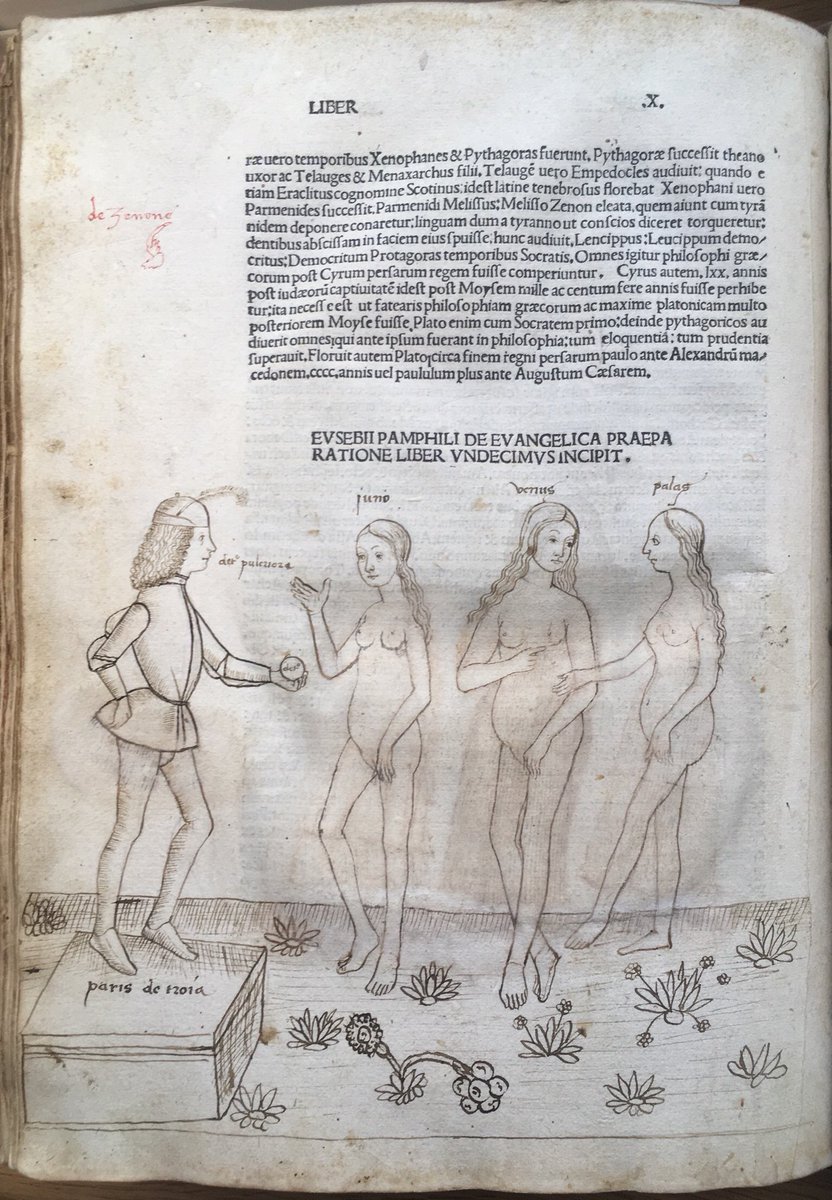 LIBER .X.
ræ uero temporibus Xenophanes & Pythagoras fuerunt. Pythagoræ ſucceſſit theano
uxor ac Telauges & Menaxarchus filii. Telaugē uero Empedocles audiuit: quando e
tiam Eraclitus cognomine Scotinus: ideſt latine tenebroſus florebat Xenophani uero
Parmenides ſucceſſit. Parmenidi Meliſſus: Meliſſo Zenon eleata, quem aiunt cum tyrā
nidem deponere conaretur: linguam dum a tyranno ut conſcios diceret torqueretur:
de Zenone
dentibus abſciſſam in faciem eius ſpuiſſe: hunc audiuit, Lencippus: Leucippum demo/
critus: Democritum Protagoras temporibus Socratis. Omnes igitur philoſophi græ/
corum poſt Cyrum perſarum regem fuiſſe comperiuntur. Cyrus autem, lxx. annis
poſt iudæorū captiuitatē ideſt poſt Moyſem mille ac centum fere annis fuiſſe perhibe
tur: ita neceſſe eſt ut fatearis philoſophiam græcorum ac maxime platonicam multo
poſteriorem Moyſe fuiſſe. Plato enim cum Socratem primo: deinde pythagoricos au
diuerit omnes: qui ante ipſum fuerant in philoſophia: tum eloquentia: tum prudentia
ſuperauit. Floruit autem Plato: circa finem regni perſarum paulo ante Alexandrū ma/
cedonem, cccc. annis uel paululum plus ante Auguſtum Cæſarem.
EVSEBII PAMPHILI DE EVANGELICA PRAEPA
RATIONE LIBER VNDECIMVS INCIPIT.
juno
venus
palas
paris de troia